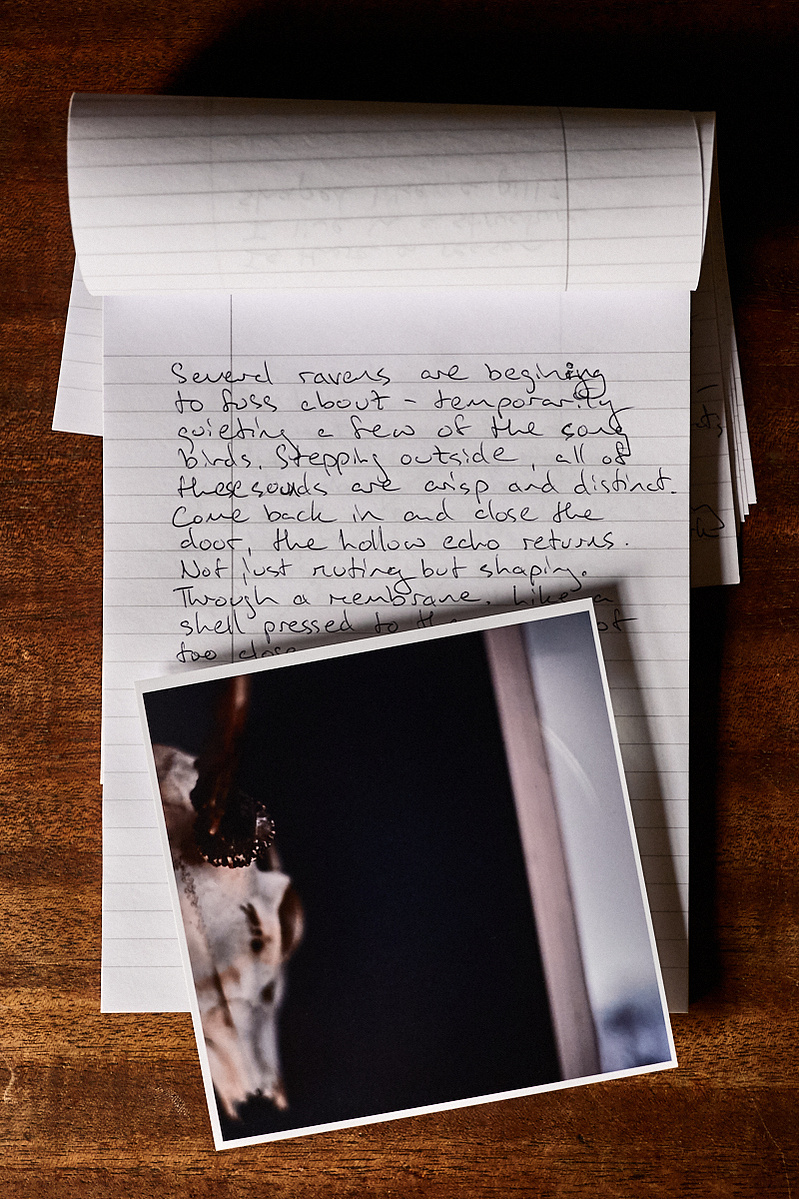 Several ravens are begining
to fuss about - temporarily
quieting a few of the song
birds. Stepping outside, all of
these sounds are crisp and distinct.
Come back in and close the
door, the hollow echo returns.
Not just muting but shaping.
Through a membrane. Like a
shell pressed to the of
too close